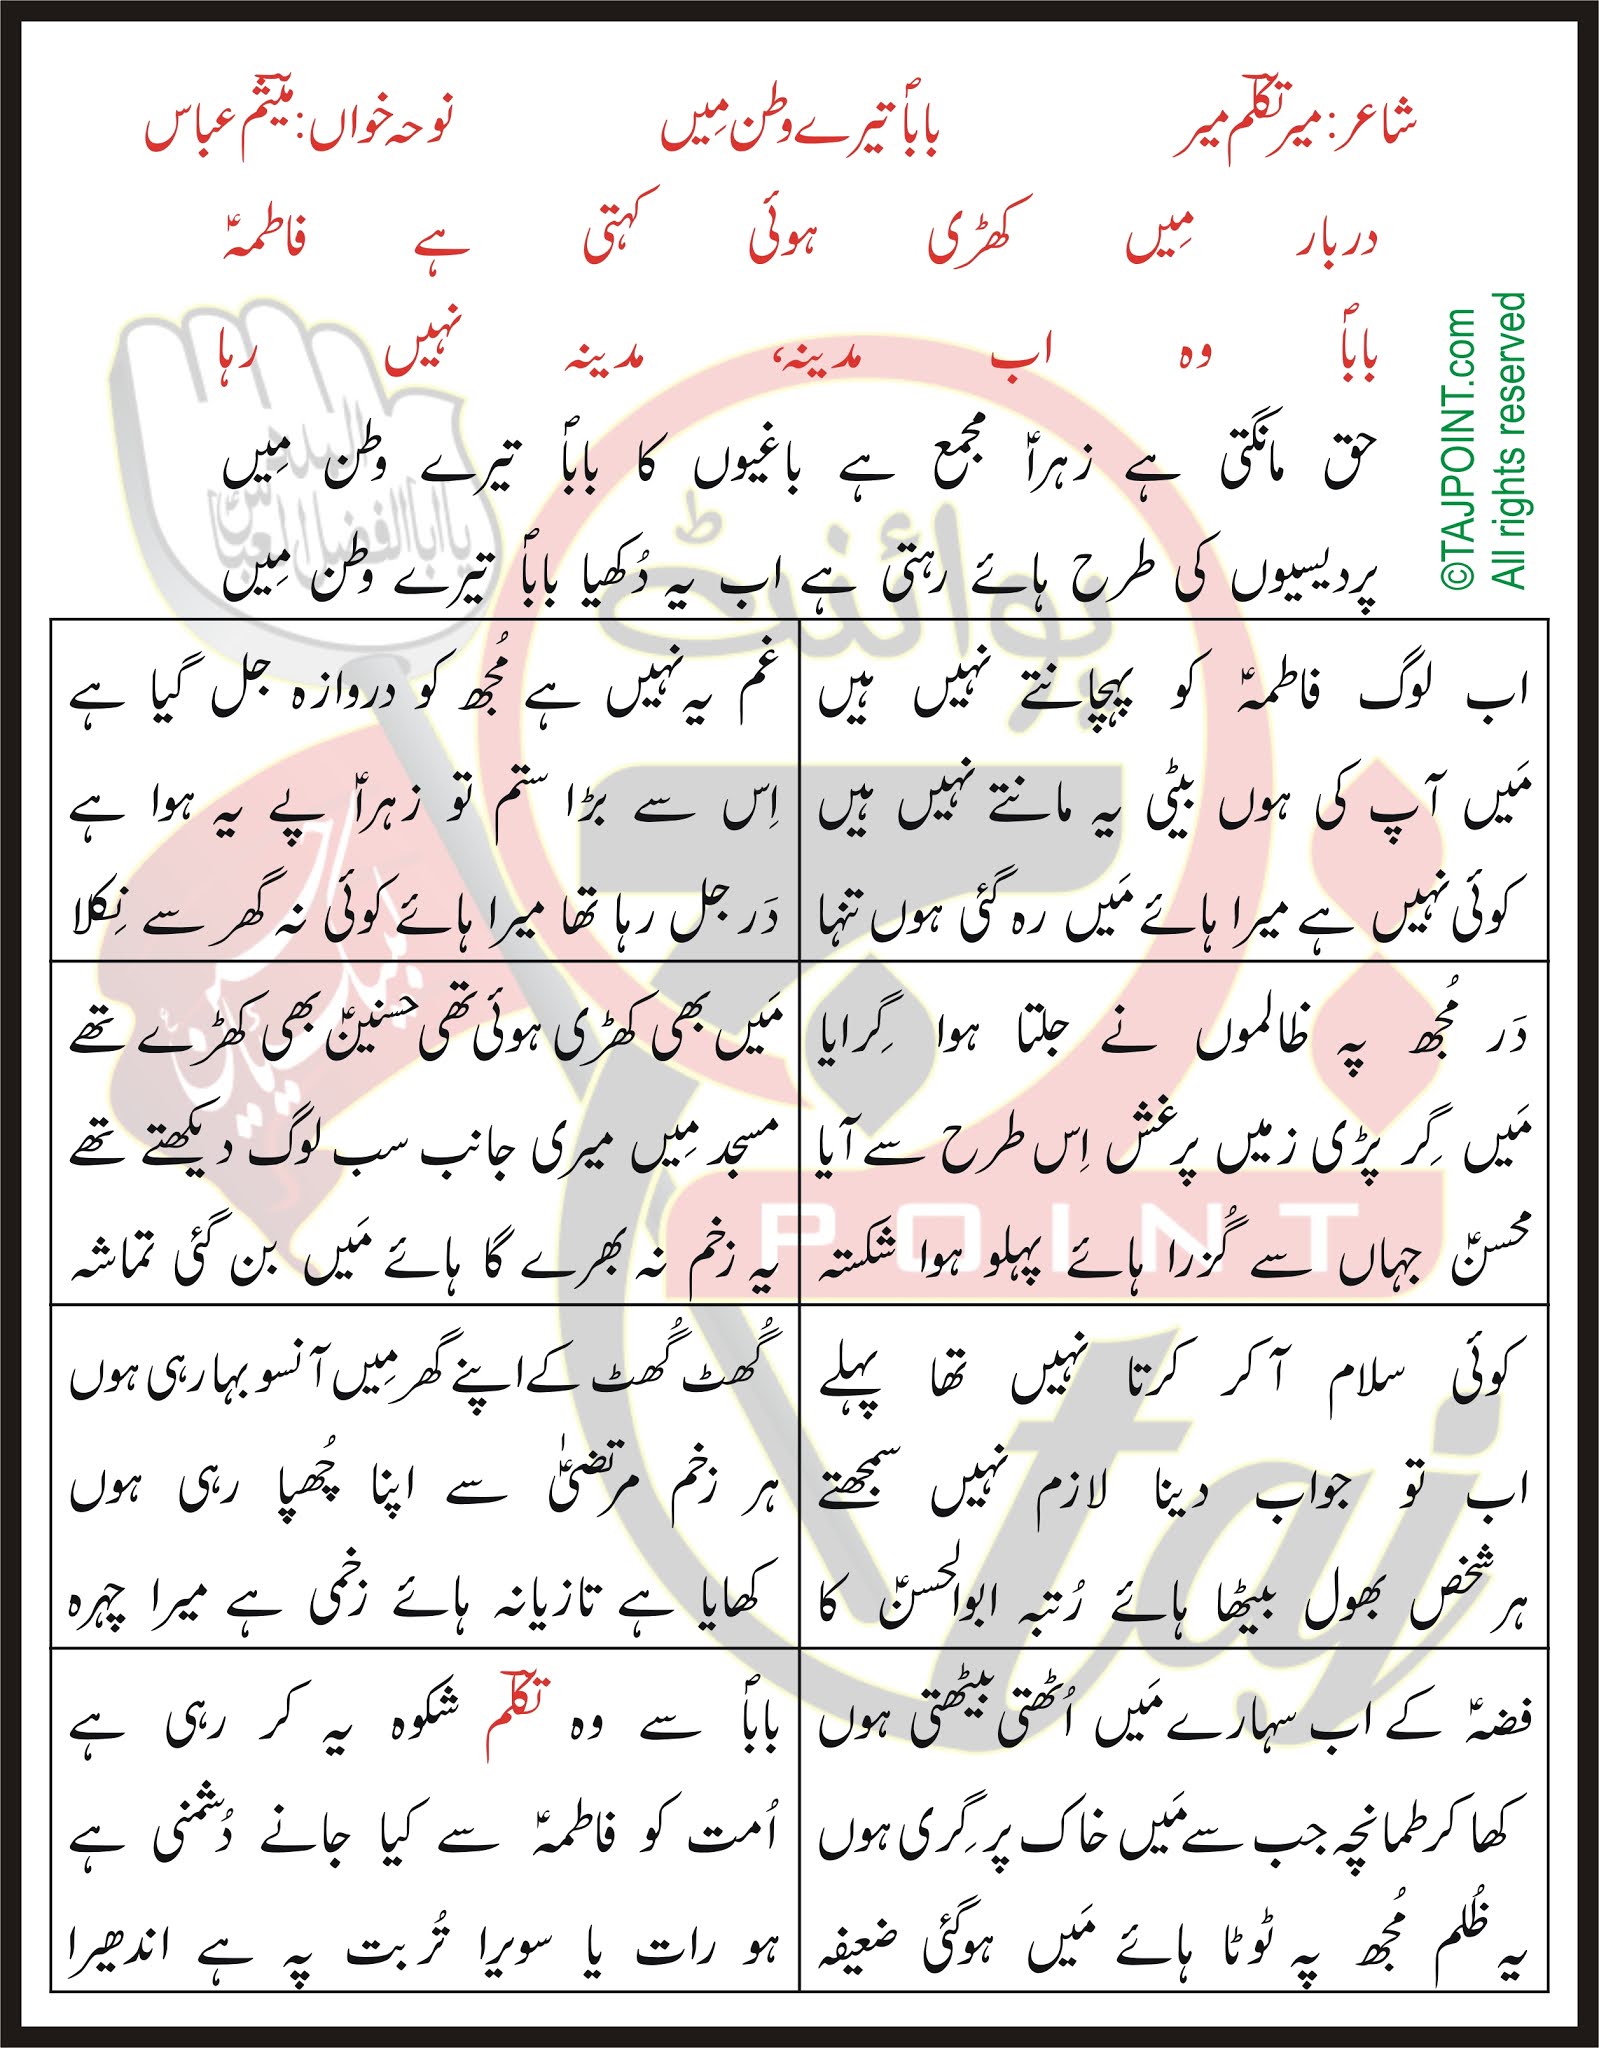 شاعر: میر تکلّم میر
باباؐ تیرے وطن مِیں
نوحہ خواں: میثم عباس
دربار مِیں کھڑی ہوئی کہتی ہے فاطمہؑ
باباؐ وہ اب مدینہ، مدینہ نہیں رہا
حق مانگتی ہے زہراؑ مجمع ہے باغیوں کا باباؐ تیرے وطن مِیں
پردیسیوں کی طرح ہائے رہتی ہے اب یہ دُکھیا باباؐ تیرے وطن مِیں
©TAJPOINT.com
All rights reserved
اب لوگ فاطمہؑ کو پہچانتے نہیں ہیں
مَیں آپ کی ہوں بیٹی یہ مانتے نہیں ہیں
کوئی نہیں ہے میرا ہائے مَیں رہ گئی ہوں تنہا
غم یہ نہیں ہے مُجھ کو دروازہ جل گیا ہے
اِس سے بڑا ستم تو زہراؑ پے یہ ہوا ہے
دَر جل رہا تھا میرا ہائے کوئی نہ گھر سے نِکلا
دَر مُجھ پہ ظالموں نے جلتا ہوا گِرایا
مَیں گِر پڑی زمیں پر غش اِس طرح سے آیا
محسنؑ جہاں سے گُزرا ہائے پہلو ہوا شکستہ
مَیں بھی کھڑی ہوئی تھی حسنینؑ بھی کھڑے تھے
مسجد مِیں میری جانب سب لوگ دیکھتے تھے
یہ زخم نہ بھرے گا ہائے مَیں بن گئی تماشہ
کوئی سلام آ کر کرتا نہیں تھا پہلے
اب تو جواب دینا لازم نہیں سمجھتے
ہر شخص بھول بیٹھا ہائے رُتبہ ابوالحسنؑ کا
گُھٹ گُھٹ کے اپنے گھر مِیں آنسو بہا رہی ہوں
ہر زخم مرتضیٰؑ سے اپنا چُھپا رہی ہوں
کھایا ہے تازیانہ ہائے زخمی ہے میرا چہرہ
فضہؑ کے اب سہارے مَیں اُٹھتی بیٹھتی ہوں
کھا کر طمانچہ جب سے مَیں خاک پر گِری ہوں
یہ ظُلم مُجھ پہ ٹوٹا ہائے مَیں ہوگئی ضعیفہ
باباؐ سے وہ تکلّم شکوہ یہ کر رہی ہے
اُمت کو فاطمہؑ سے کیا جانے دُشمنی ہے
ہو رات یا سویرا تُربت پہ ہے اندھیرا
پوائنٹ
POINT
taj
یا ابا الفضل العباسؑ